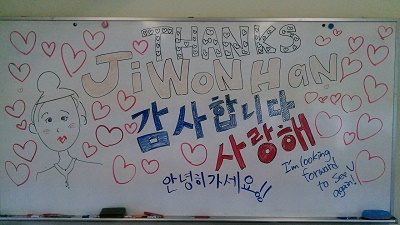 THANKS
JiWON HaN
감사합니다
사랑해
안녕히가세요!!
I'm looking
forward
to see U
again!